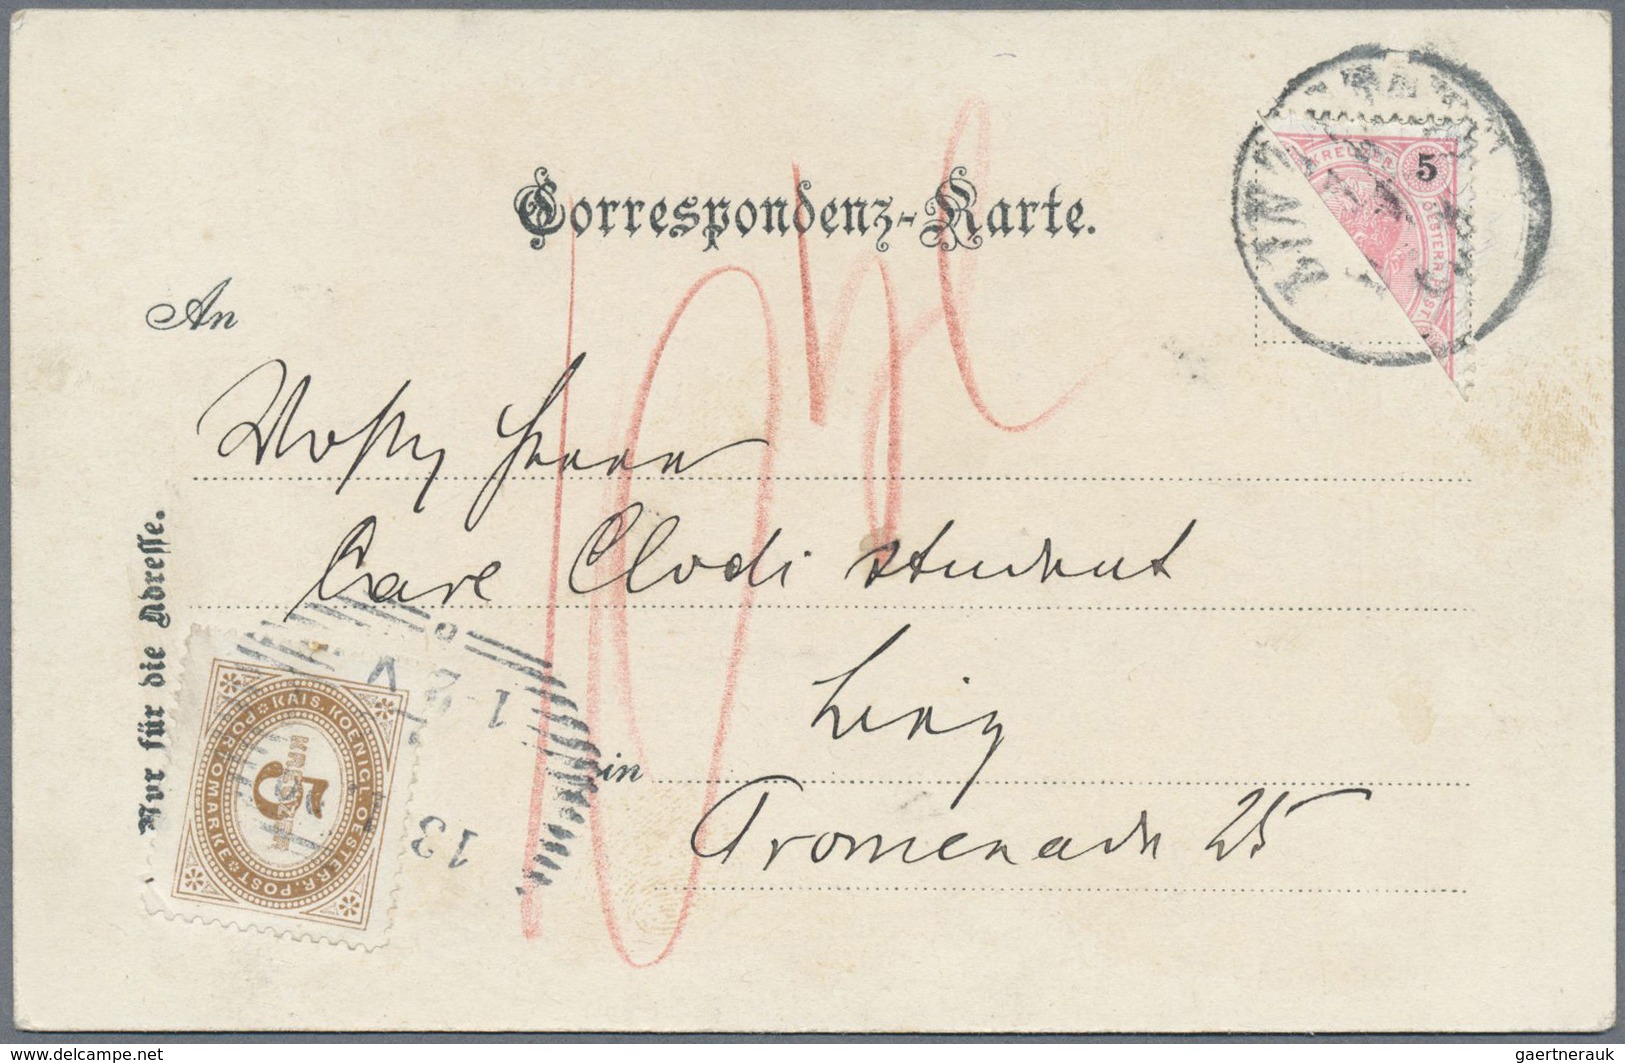 Correspondenz-Karte.
LINZ
KREUZER
5
OESTERR. POST
10 hl
An
Herrn
Carl Clodi student
Linz
in
Promenade 25
Nur für die Adresse.
KAIS. KOENIGL. OESTERR. POST
PORTOMARKE
5
KREUZER
1-2 V
13
www.delcampe.net
gaertnerauk